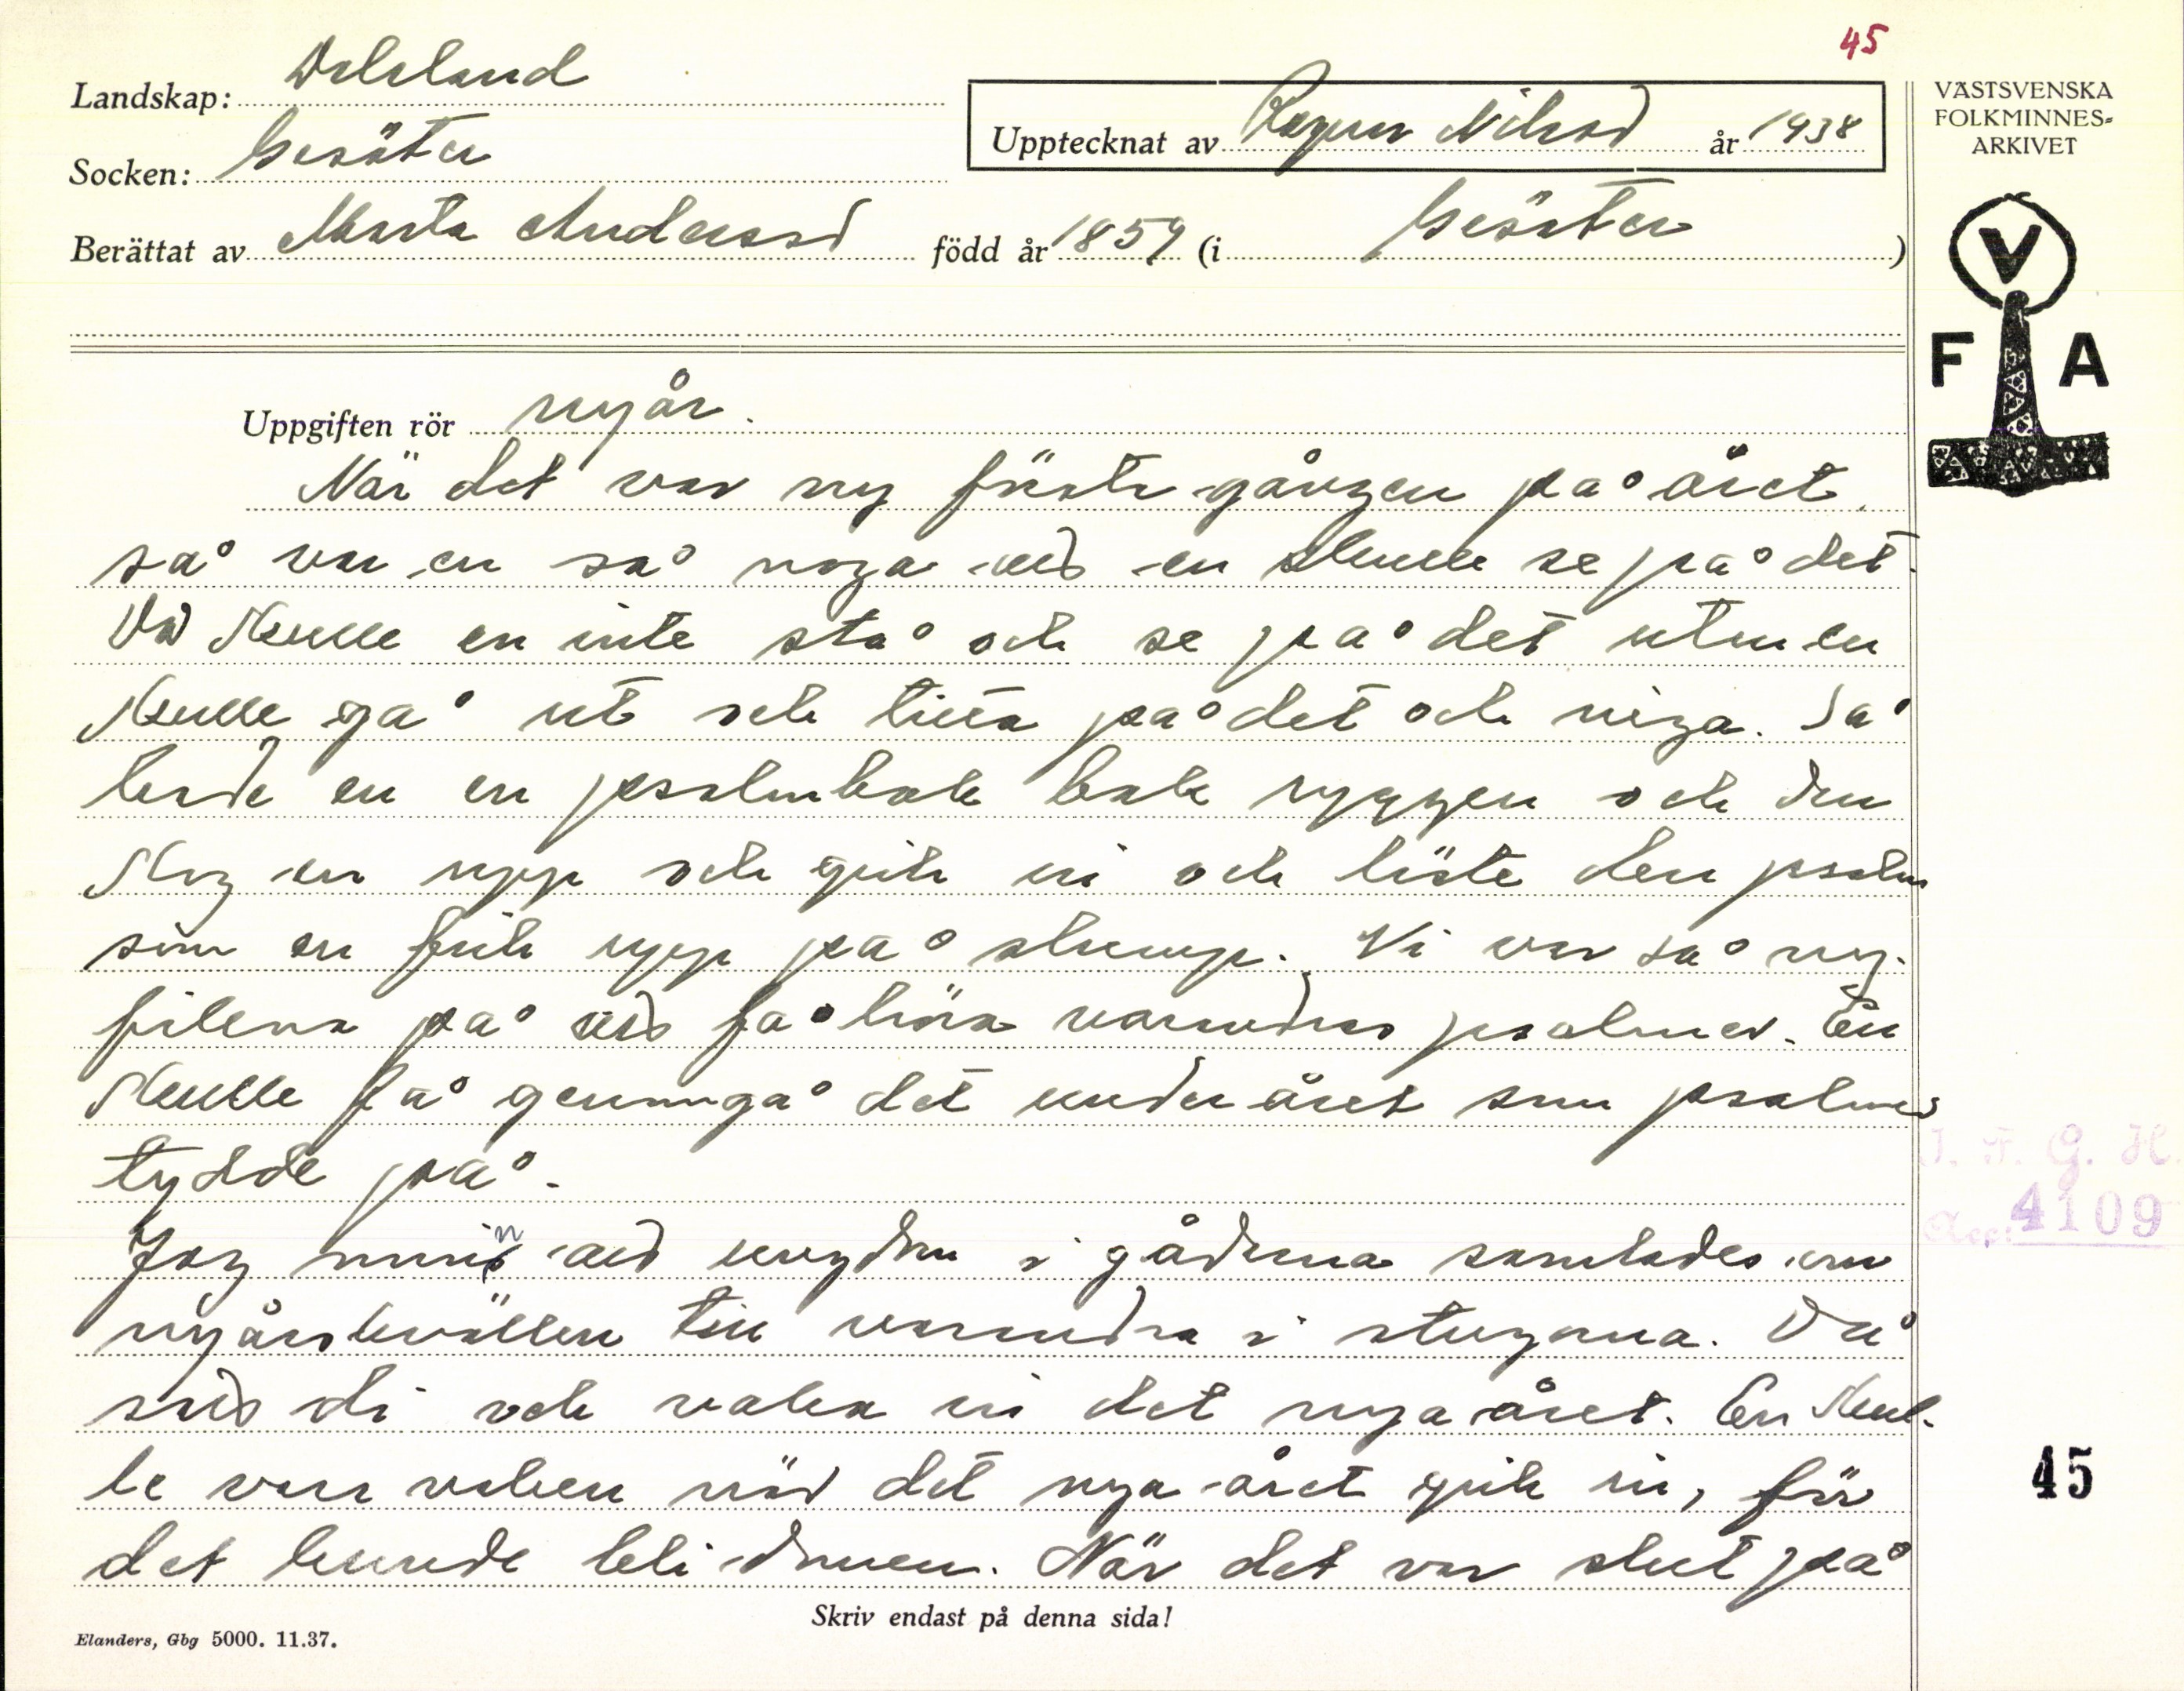 45
Landskap: Dalsland
Socken: Gesäter
Upptecknat av Ragnar Nilsson år 1938
Berättat av Marta Andersson född år 1859 (i Gesäter)
VÄSTSVENSKA
FOLKMINNES-
ARKIVET
V
F A
Uppgiften rör nyår.
När det var ny första gången på året,
så var en så noga att en skulle se på det.
Då skulle en inte stå och se på det utan en
skulle gå ut och titta på det och niga. Så
hade en en psalmbok bak ryggen och den
slog en upp och gick in och läste den psalm
som en fick upp på slump. Vi var så ny-
fikna på att få höra varandras psalmer. En
skulle få genomgå det under året som psalmen
tydde på.
Jag minns att ungdom i gårdarna samlades om
nyårskvällen till varandra i stugorna. Då
satt di och vaka in det nya året. En skul-
le vara vaken när det nya året gick in, för
det hände bli drucken. När det var slut på
J. F. G. H.
Acc: 4109
45
Skriv endast på denna sida!
Elanders, Gbg 5000. 11.37.